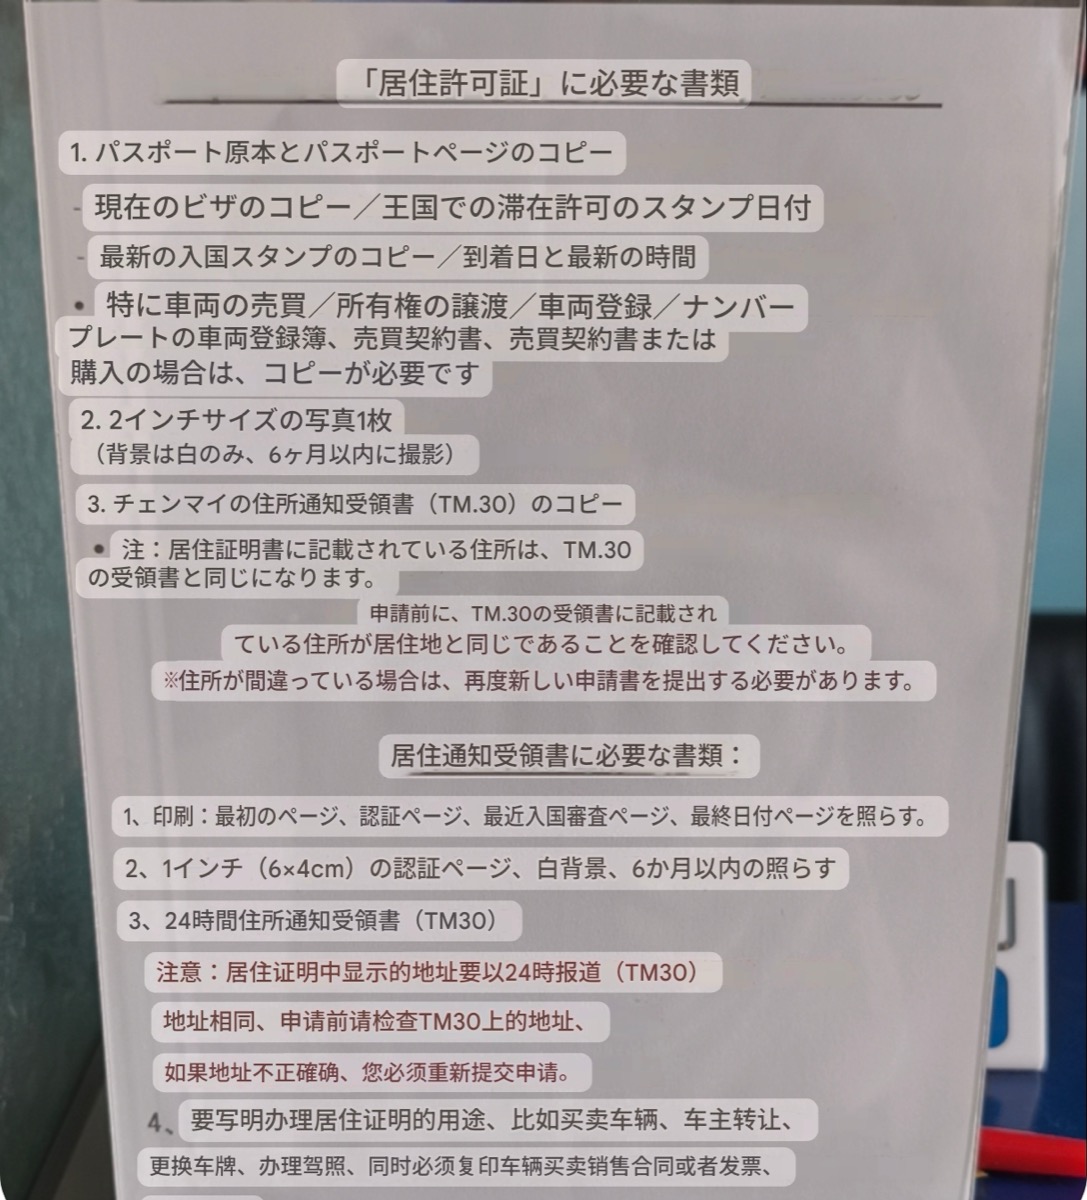 「居住許可証」に必要な書類
1. パスポート原本とパスポートページのコピー
- 現在のビザのコピー／王国での滞在許可のスタンプ日付
- 最新の入国スタンプのコピー／到着日と最新の時間
• 特に車両の売買／所有権の譲渡／車両登録／ナンバー
プレートの車両登録簿、売買契約書、売買契約書または
購入の場合は、コピーが必要です
2. 2インチサイズの写真1枚
（背景は白のみ、6ヶ月以内に撮影）
3. チェンマイの住所通知受領書（TM.30）のコピー
• 注：居住証明書に記載されている住所は、TM.30
の受領書と同じになります。
申請前に、TM.30の受領書に記載され
ている住所が居住地と同じであることを確認してください。
※住所が間違っている場合は、再度新しい申請書を提出する必要があります。
居住通知受領書に必要な書類：
1、印刷：最初のページ、認証ページ、最近入国審査ページ、最終日付ページを照らす。
2、1インチ（6×4cm）の認証ページ、白背景、6か月以内の照らす
3、24時間住所通知受領書（TM30）
注意：居住证明中显示的地址要以24時报道（TM30）
地址相同、申请前请检查TM30上的地址、
如果地址不正確确、您必须重新提交申请。
4、要写明办理居住证明的用途、比如买卖车辆、车主转让、
更换车牌、办理驾照、同时必须复印车辆买卖销售合同或者发票、